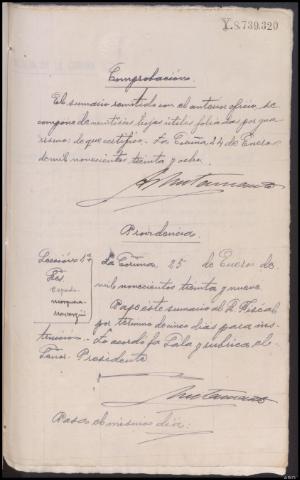 Y.8.739.320
Comprobacion.
El sumario remitido con el anterior oficio, se
compone de veintiseis hojas utiles foliadas por gua
rismo: de que certifico. La Coruña 24 de Enero
de mil novecientos treinta y ocho.
Providencia.
Sección 1ª
La Coruña 25 de Enero de
mil novecientos treinta y nueve
Pase este sumario al Sr. Fiscal
por termino de cinco dias para ins
trucción. Lo acordó la Sala y rubrica el
Señor Presidente
Pasa el mismo dia.